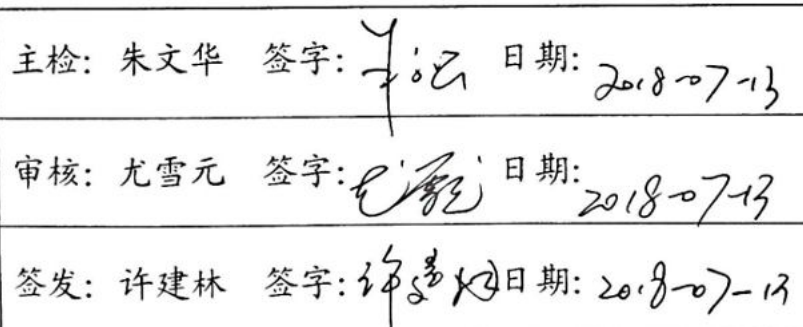 主检: 朱文华 签字: 日期: 2018-07-13
审核: 尤雪元 签字: 尤雪元 日期: 2018-07-13
签发: 许建林 签字: 许建林 日期: 2018-07-13